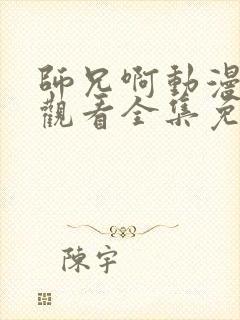 師兄啊動漫
觀看全集免
陳宇